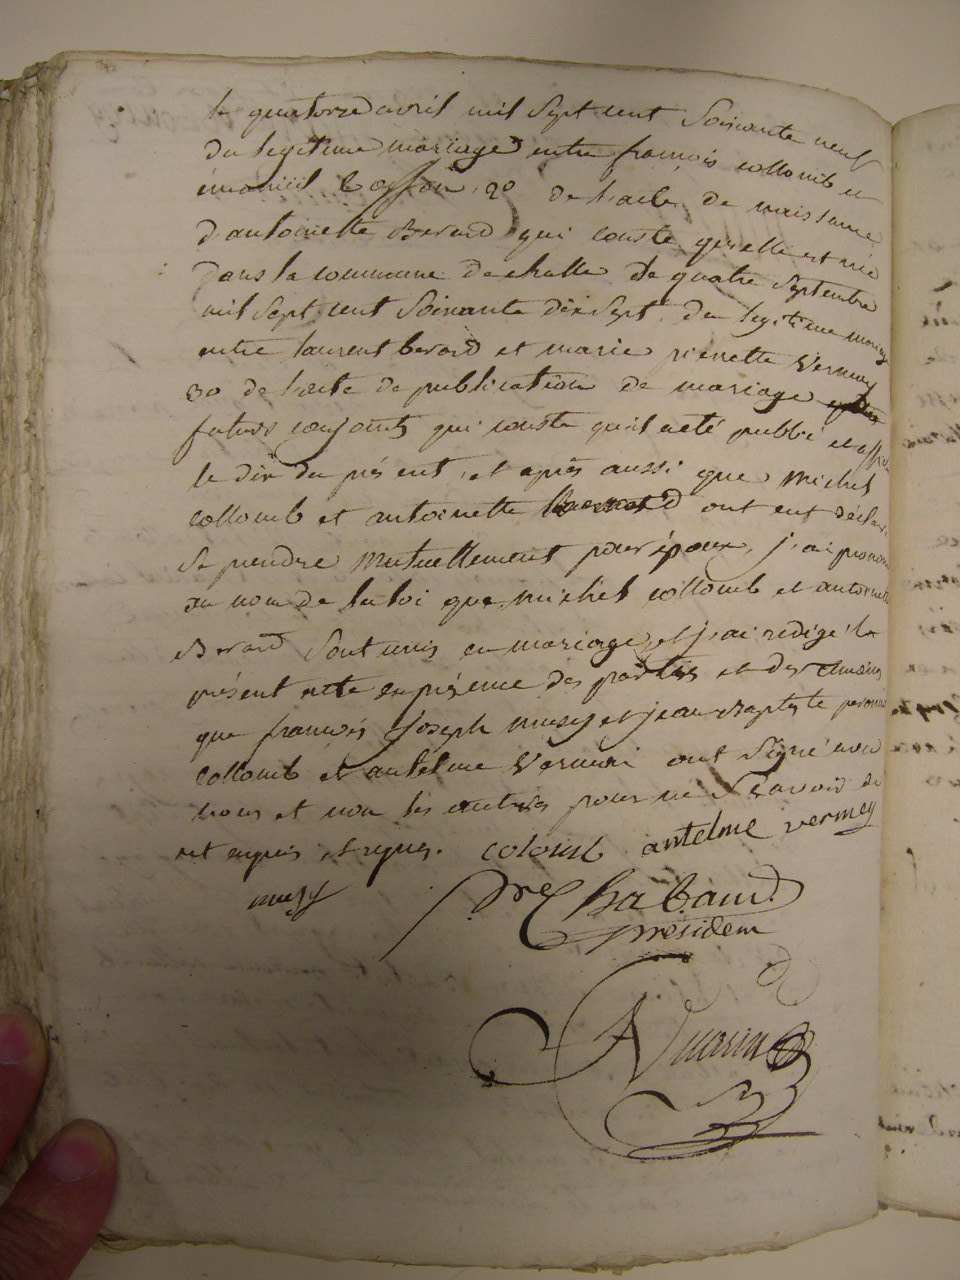 le quatorze avril mil Sept cent Soixante neuf
du legitime mariage entre françois collomb et
20 de l'acte de naissance
d'antoinette Berard qui conste qu'elle est née
dans la commune de challe le quatre Septembre
mil Sept cent Soixante dix Sept du legitime mariag
entre laurent berard et marie pierrette Vermey
30 de l'acte de publication de mariage
futurs conjoints qui conste qu'il a eté publié et affi
le dix du présent, et après aussi que michel
collomb et antoinette ont eut déclar
Se prendre mutuellement pour époux, j'ai prono
au nom de la loi que michel collomb et antoinett
Berard Sont unis en mariage et j'ai redigé le
présent acte en présence des parties et des temoins
que françois joseph musy et jean Baptiste
collomb et antelme Vermei ont Signé avec
nous et non les autres pour ne Sçavoir de
ce enquis et requis. colomb antelme vermey
musy pre Chabaud
president